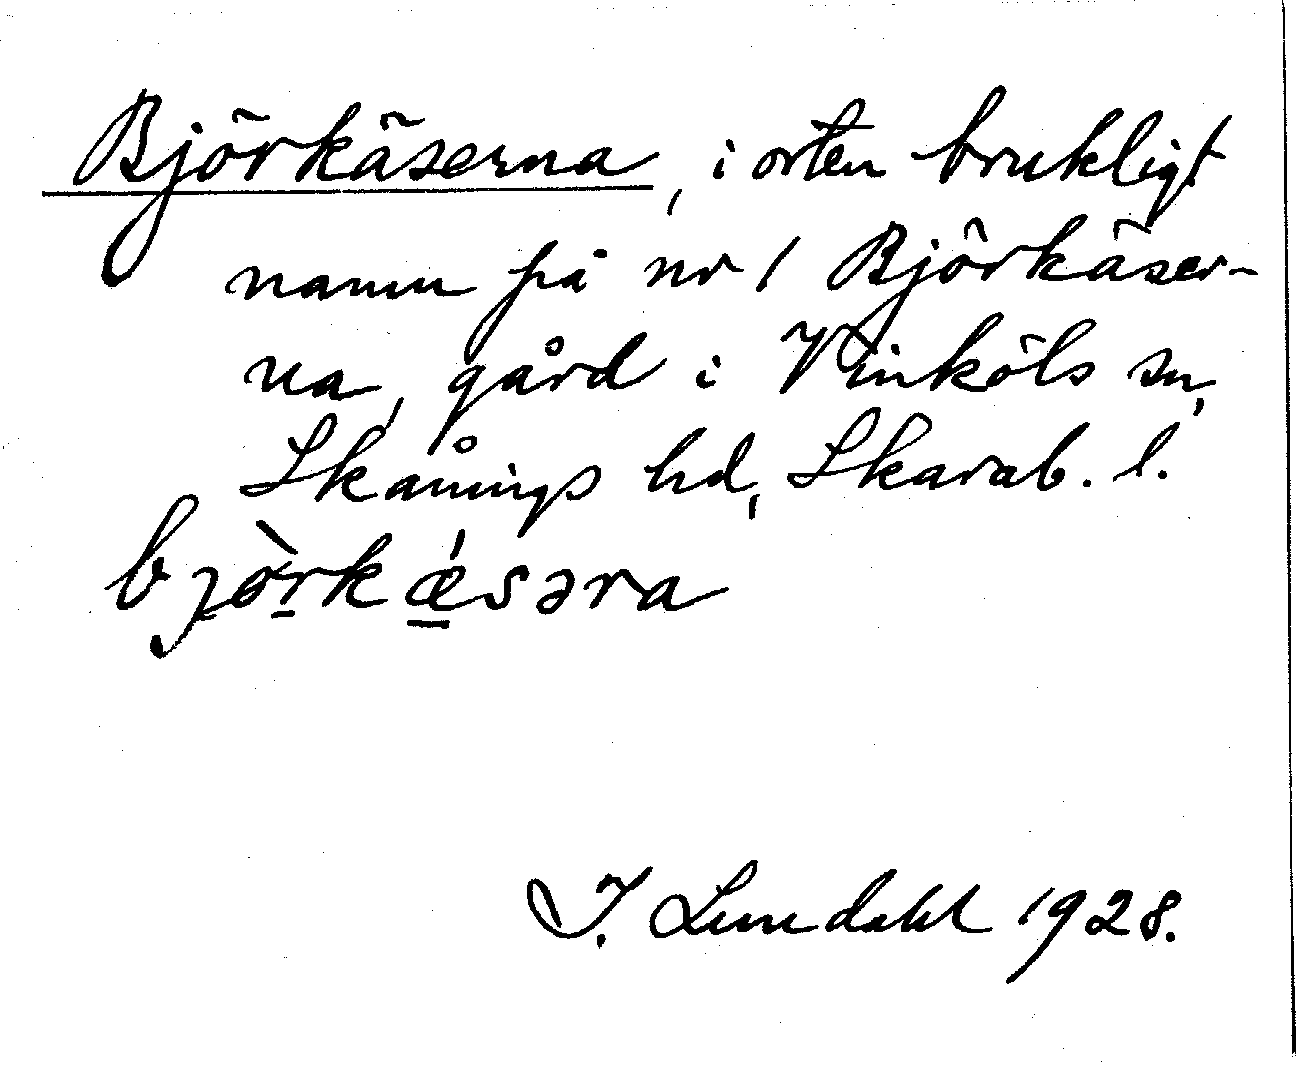 Björkäserna, i orten brukligt
namn på nr 1 Björkäser-
na, gård i Vinköls sn,
Skånings hd, Skarab. l.
bjò̱rkǽ̱səra
I. Lundahl 1928.